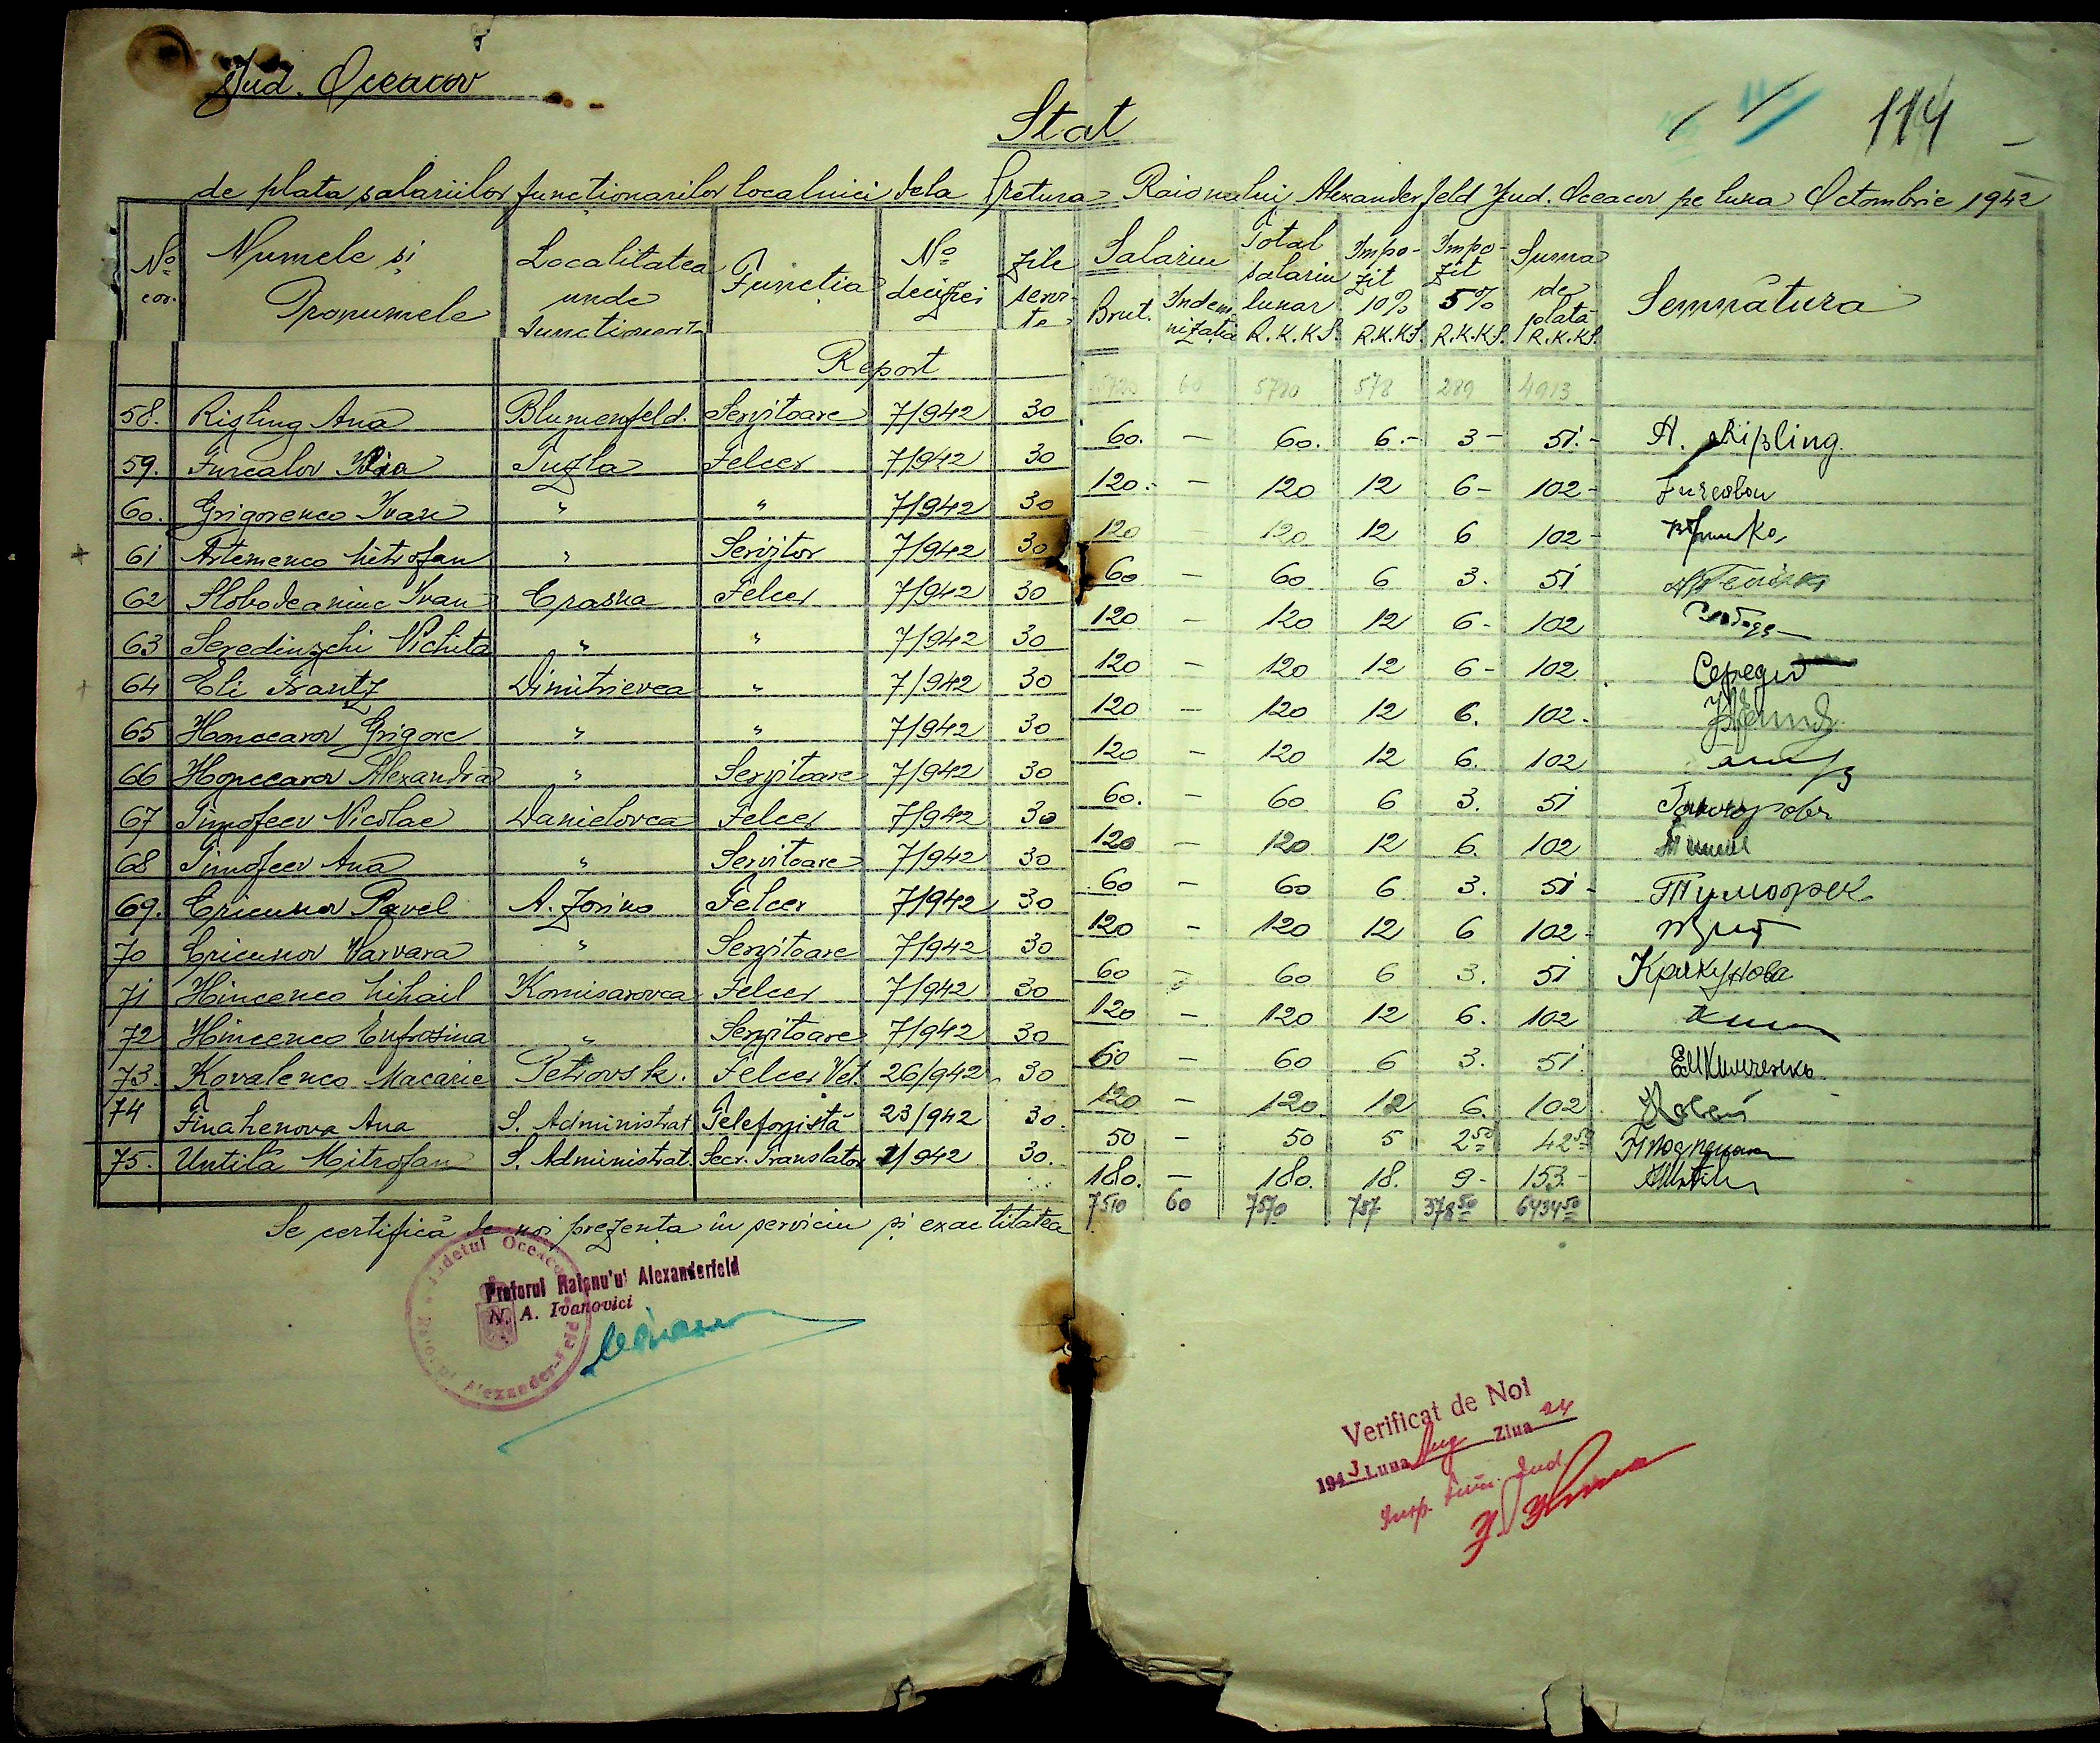 Jud. Oceacov
114
Stat
de plata salariilor funcționarilor localnici dela Pretura Raionului Alexanderfeld Jud. Oceacov pe luna Octombrie 1942
No cor. Numele și Pronumele Localitatea unde funcționează Funcția No deciziei Zile servite Salariu Brut. Indemnizația Total salariu lunar R.K.KS. Impozit 10% R.K.KS. Impozit 5% R.K.KS. Suma de plată R.K.KS. Semnătura
Report 60 5780 578 289 4913
58. Rizling Ana Blumenfeld. Servitoare 7/942 30 60. — 60. 6.- 3- 51.- A. Rißling.
59. Furcalov Tuzla Felcer 7/942 30 120.- — 120 12 6- 102-
60. Grigorenco Ivan " " 7/942 30 120 — 120 12 6 102-
61 Artemenco Mitrofan " Servitor 7/942 30 60 — 60 6 3. 51
62 Slobodeaniuc Ivan Crasna Felcer 7/942 30 120 — 120 12 6- 102
63 Seredinschi Nichita " " 7/942 30 120 — 120 12 6- 102 Середи
64 Eli Frantz Dimitrievca " 7/942 30 120 — 120 12 6. 102-
65 Honcearov Grigore " " 7/942 30 120 — 120 12 6. 102
66 Honcearov Alexandra " Servitoare 7/942 30 60. — 60 6 3. 51
67 Timofeev Nicolae Danielovca Felcer 7/942 30 120 — 120 12 6. 102
68 Timofeev Ana " Servitoare 7/942 30 60 — 60 6 3. 51-
69. Cricunov Pavel A. Zorino Felcer 7/942 30 120 — 120 12 6 102-
70 Cricunov Varvara " Servitoare 7/942 30 60 — 60 6 3. 51 Крикунова
71 Hincenco Mihail Komisarovca Felcer 7/942 30 120 — 120 12 6. 102
72 Hincenco Eufrosina " Servitoare 7/942 30 60 — 60 6 3. 51.
73. Kovalenco Macarie Petrovsk. Felcer Vet. 26/942 30 120 — 120. 12 6. 102
74 Finahenova Ana S. Administrat Telefonistă 23/942 30. 50 — 50 5 2 50 42 50
75. Untilă Mitrofan S. Administrat. Secr. Translator 1/942 30. 180. — 180. 18. 9- 153-
7510 60 7570 757 378 50 6434 50
Se certifică de noi prezența în serviciu și exactitatea
Județul Oceacov
Alexander-Feld
Pretorul Raionu'ui Alexanderfeld
N. A. Ivanovici
Verificat de Noi
1943 Luna Aug Ziua 24
Insp. Jud.